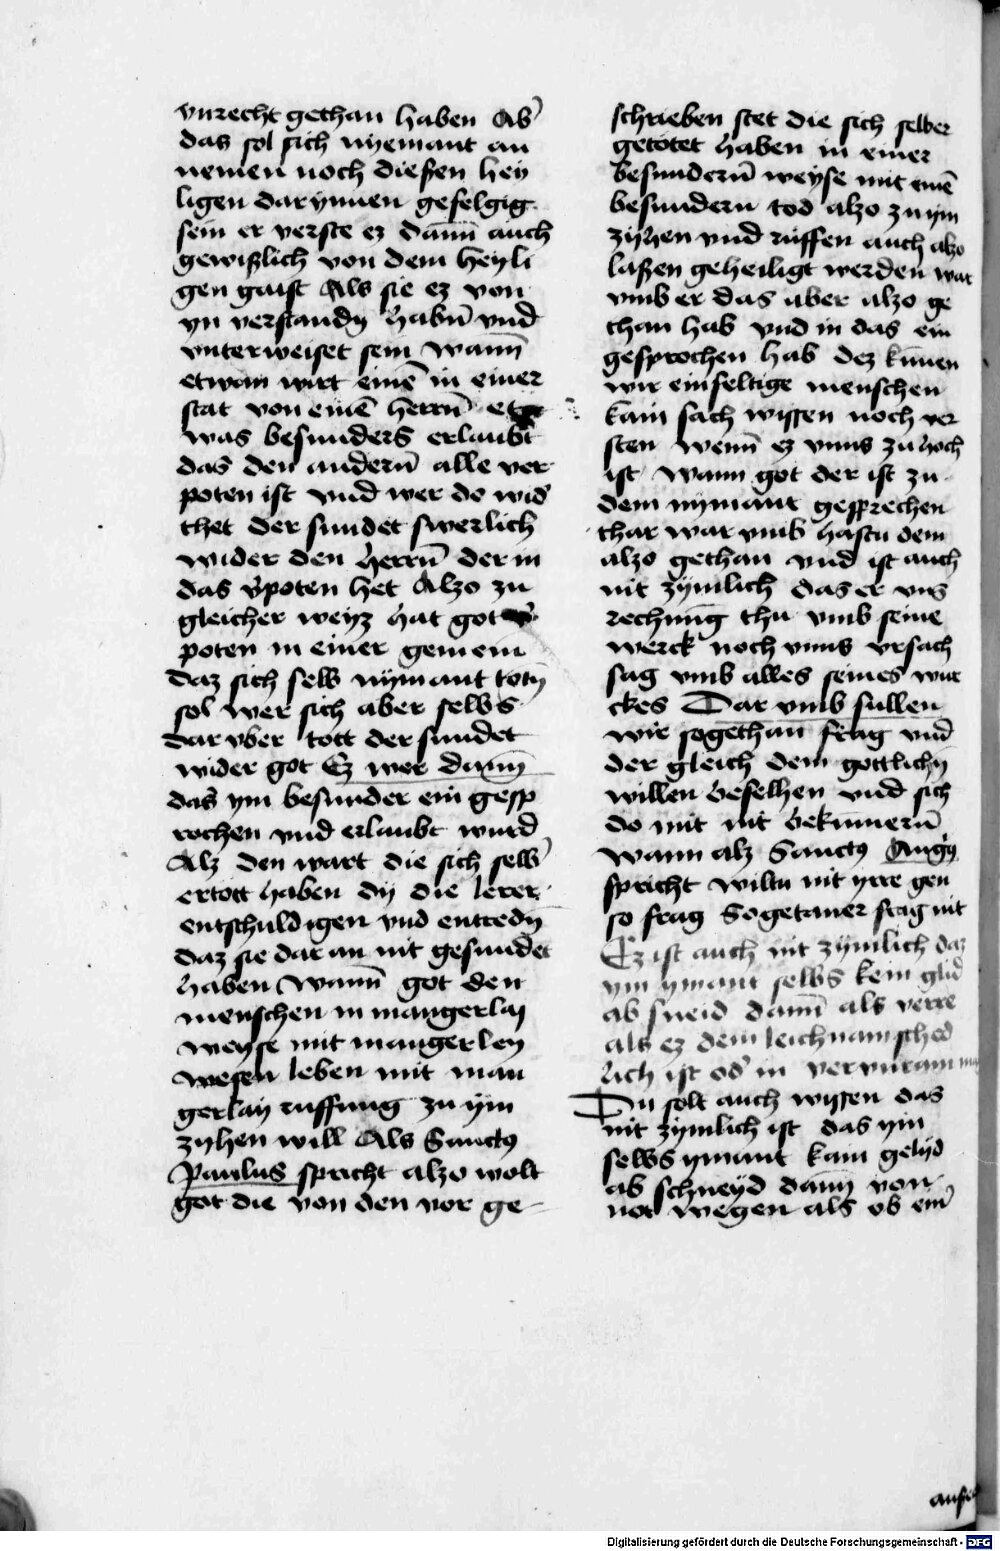 vnrecht gethan haben Ab᷒
das sol sich nyemant an
nemen noch dießen hey
ligen darynnen gefelgig
sein er verste ez dan̄n auch
gewißlich von dem heyli
gen gaist Als sie ez von
yn verstandn̄ habn̄ vnd
vnterweiset sein wann̄
etwan wirt eine᷒ in einer
stat von eine᷒ herrn̄
was besunders erlaubt
das den andern̄ alle ver
poten ist vnd wer do wid᷒
thet der sundet swerlich
wider den herrn̄ der in
das v᷒poten het Alzo zu
gleicher weyz hat got
poten in einer gemein
daz sich selb nÿmant totn̄
sol wer sich aber selbs
dar vber tott der sundet
wider got Ez wer dann̄
das ym besunder ein gesp
rochen vnd erlaubt wurd
Alz den wart die sich selb᷒
ertott haben dy die lerer
entschuldigen vnd entredn̄
daz sie dar an nit gesundet
haben Wann̄ got den
menschen in mangerlaj
weyse mit mangerley
wesen leben mit man
gerlay ruffung zu ÿm
zyhen will Als Sanctꝰ
Paulus spricht alzo wolt
got die von den vor ge
schrieben stet die sich selber
getötet haben in einer
besundern̄ weyse mit eine᷒
besundern tod alzo zu ym
zyhen vnd ruffen auch alzo
laßen geheiligt werden war
vmb er das aber alzo ge
than hab vnd in das ein
gesprochen hab dez kūnen
wir einfeltige menschen
kain sach wissen noch ver
sten wenn̄ ez vnns zu hoch
ist wann got der ist zu
dem nymant gesprechen
thar war vmb hastu dem
alzo gethan vnd ist auch
nit zÿmlich das er vns
rechnūg thu vmb seine
werck noch vnns vrsach
sag vmb alles seines wur
ckes Dar vmb sullen
wir sogethan frag vnd
der gleich dem gottlichn̄
willen befelhen vnd sich
do mit nit bekūmern̄
wann alz Sanctꝰ Augꝰ
spricht wiltu nit yrre gen
so frag Sogetaner frag nit
Ez ist auch nit zÿmlich daz
ym ymant selbs kein glid
ab sneid dann̄ als verre
als ez dem leichnam sched
lich ist od᷒ in
Du solt auch wyssen das
nit zÿmlich ist das ym
selbs ymant kain gelyd
ab schneyd dann̄ von
not wegen als ob ein᷒